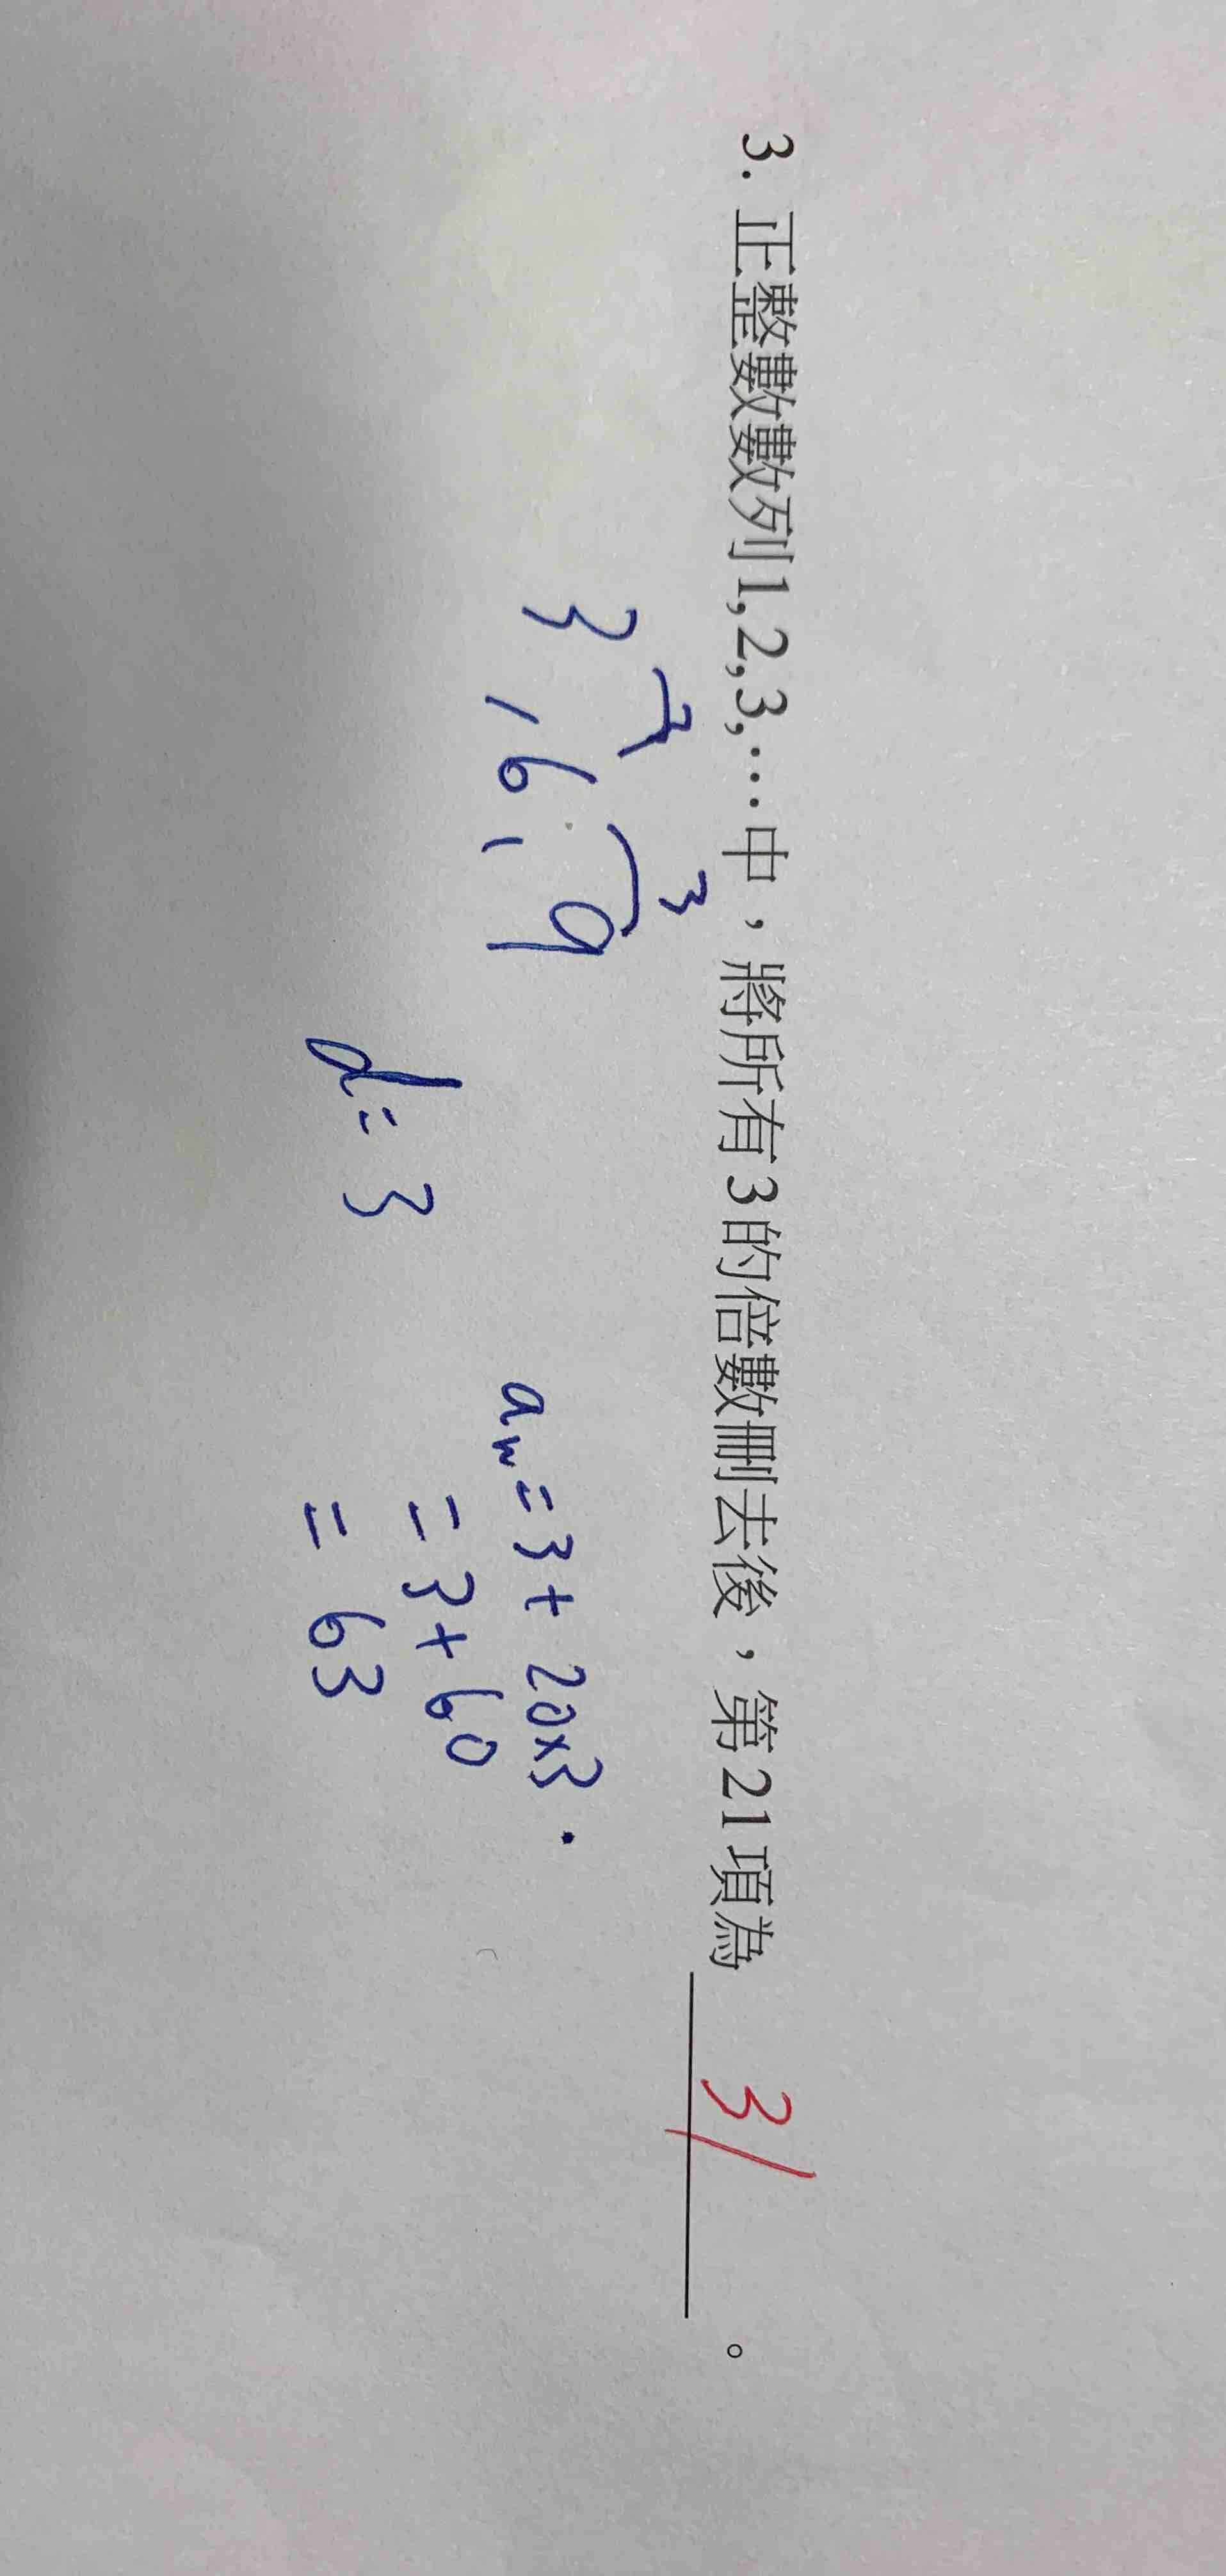 3. 正整數數列1,2,3,…中，將所有3的倍數刪去後，第21項為 31 。
3 3
3,6,9
d=3
an=3+20×3.
=3+60
=63